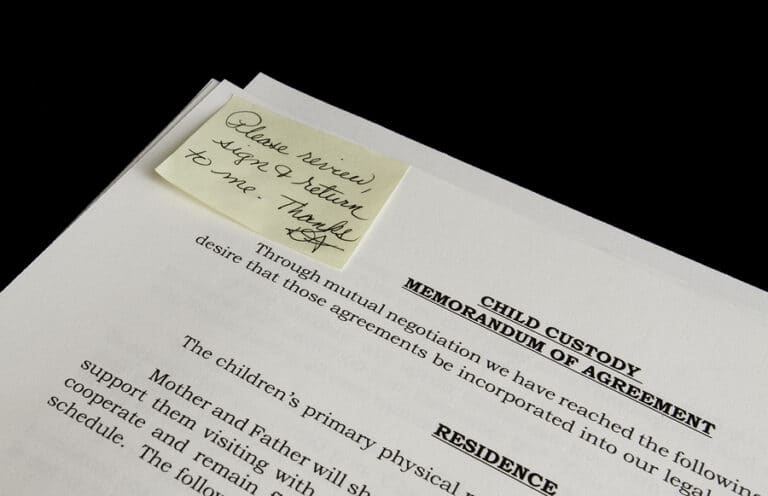 Please review,
sign & return
to me. Thanks
CHILD CUSTODY
MEMORANDUM OF AGREEMENT
Through mutual negotiation we have reached the following
desire that those agreements be incorporated into our legal
RESIDENCE
The children's primary physical
Mother and Father will
support them visiting with
cooperate and remain
schedule. The